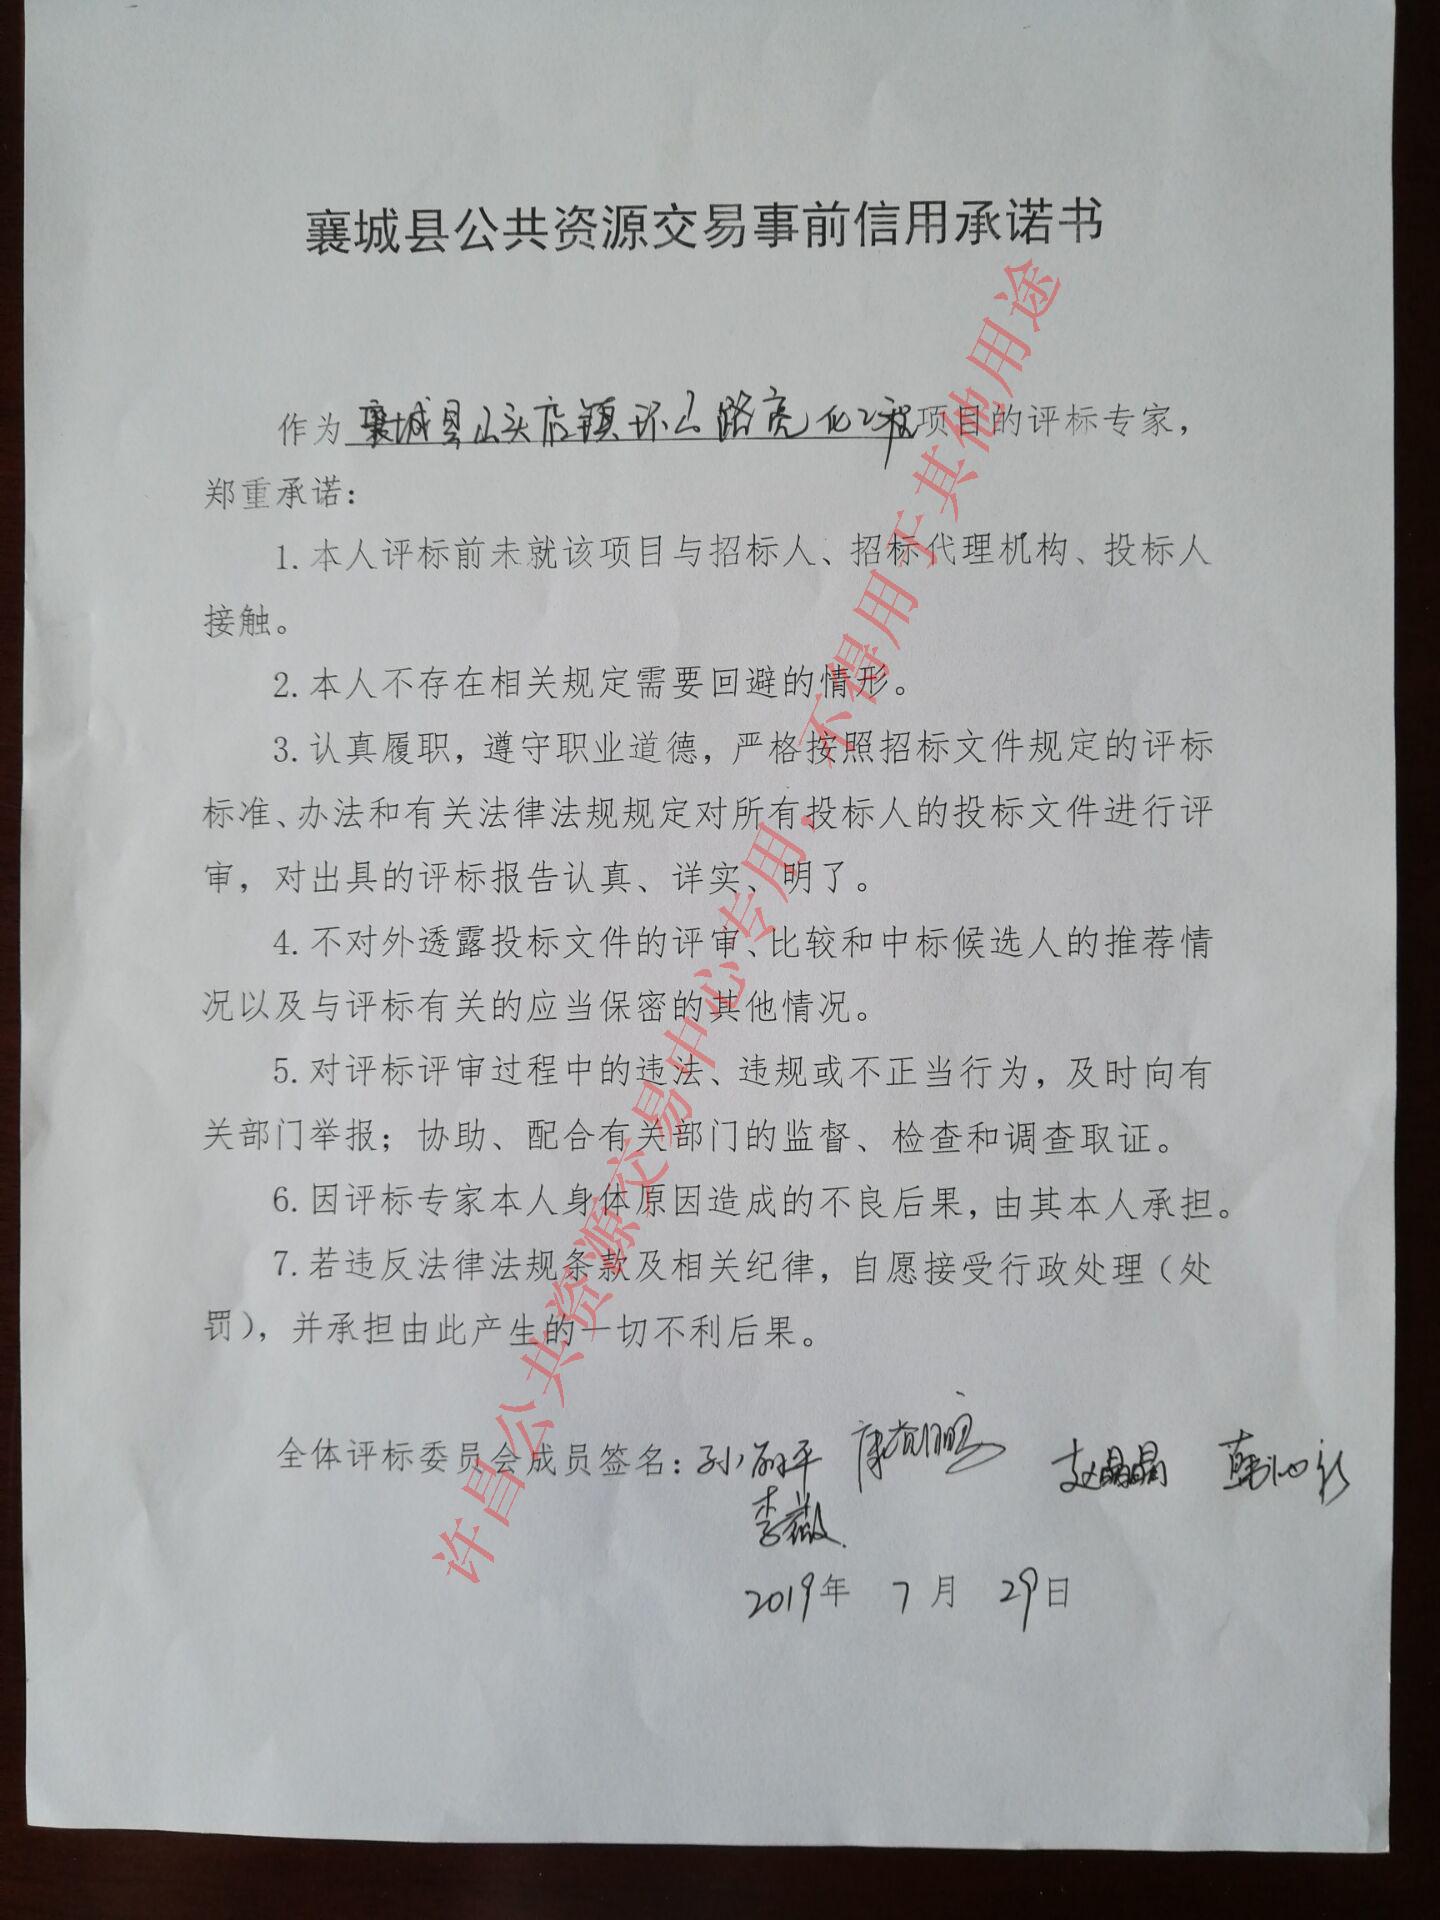 襄城县公共资源交易事前信用承诺书
作为襄城县山头店镇环山路亮化工程项目的评标专家，
郑重承诺：
1.本人评标前未就该项目与招标人、招标代理机构、投标人
接触。
2.本人不存在相关规定需要回避的情形。
3.认真履职，遵守职业道德，严格按照招标文件规定的评标
标准、办法和有关法律法规规定对所有投标人的投标文件进行评
审，对出具的评标报告认真、详实、明了。
4.不对外透露投标文件的评审、比较和中标候选人的推荐情
况以及与评标有关的应当保密的其他情况。
5.对评标评审过程中的违法、违规或不正当行为，及时向有
关部门举报；协助、配合有关部门的监督、检查和调查取证。
6.因评标专家本人身体原因造成的不良后果，由其本人承担。
7.若违反法律法规条款及相关纪律，自愿接受行政处理（处
罚），并承担由此产生的一切不利后果。
全体评标委员会成员签名：孙丽平 赵晶晶
李薇
2019年 7月 29日
许昌公共资源交易中心专用，不得用于其他用途